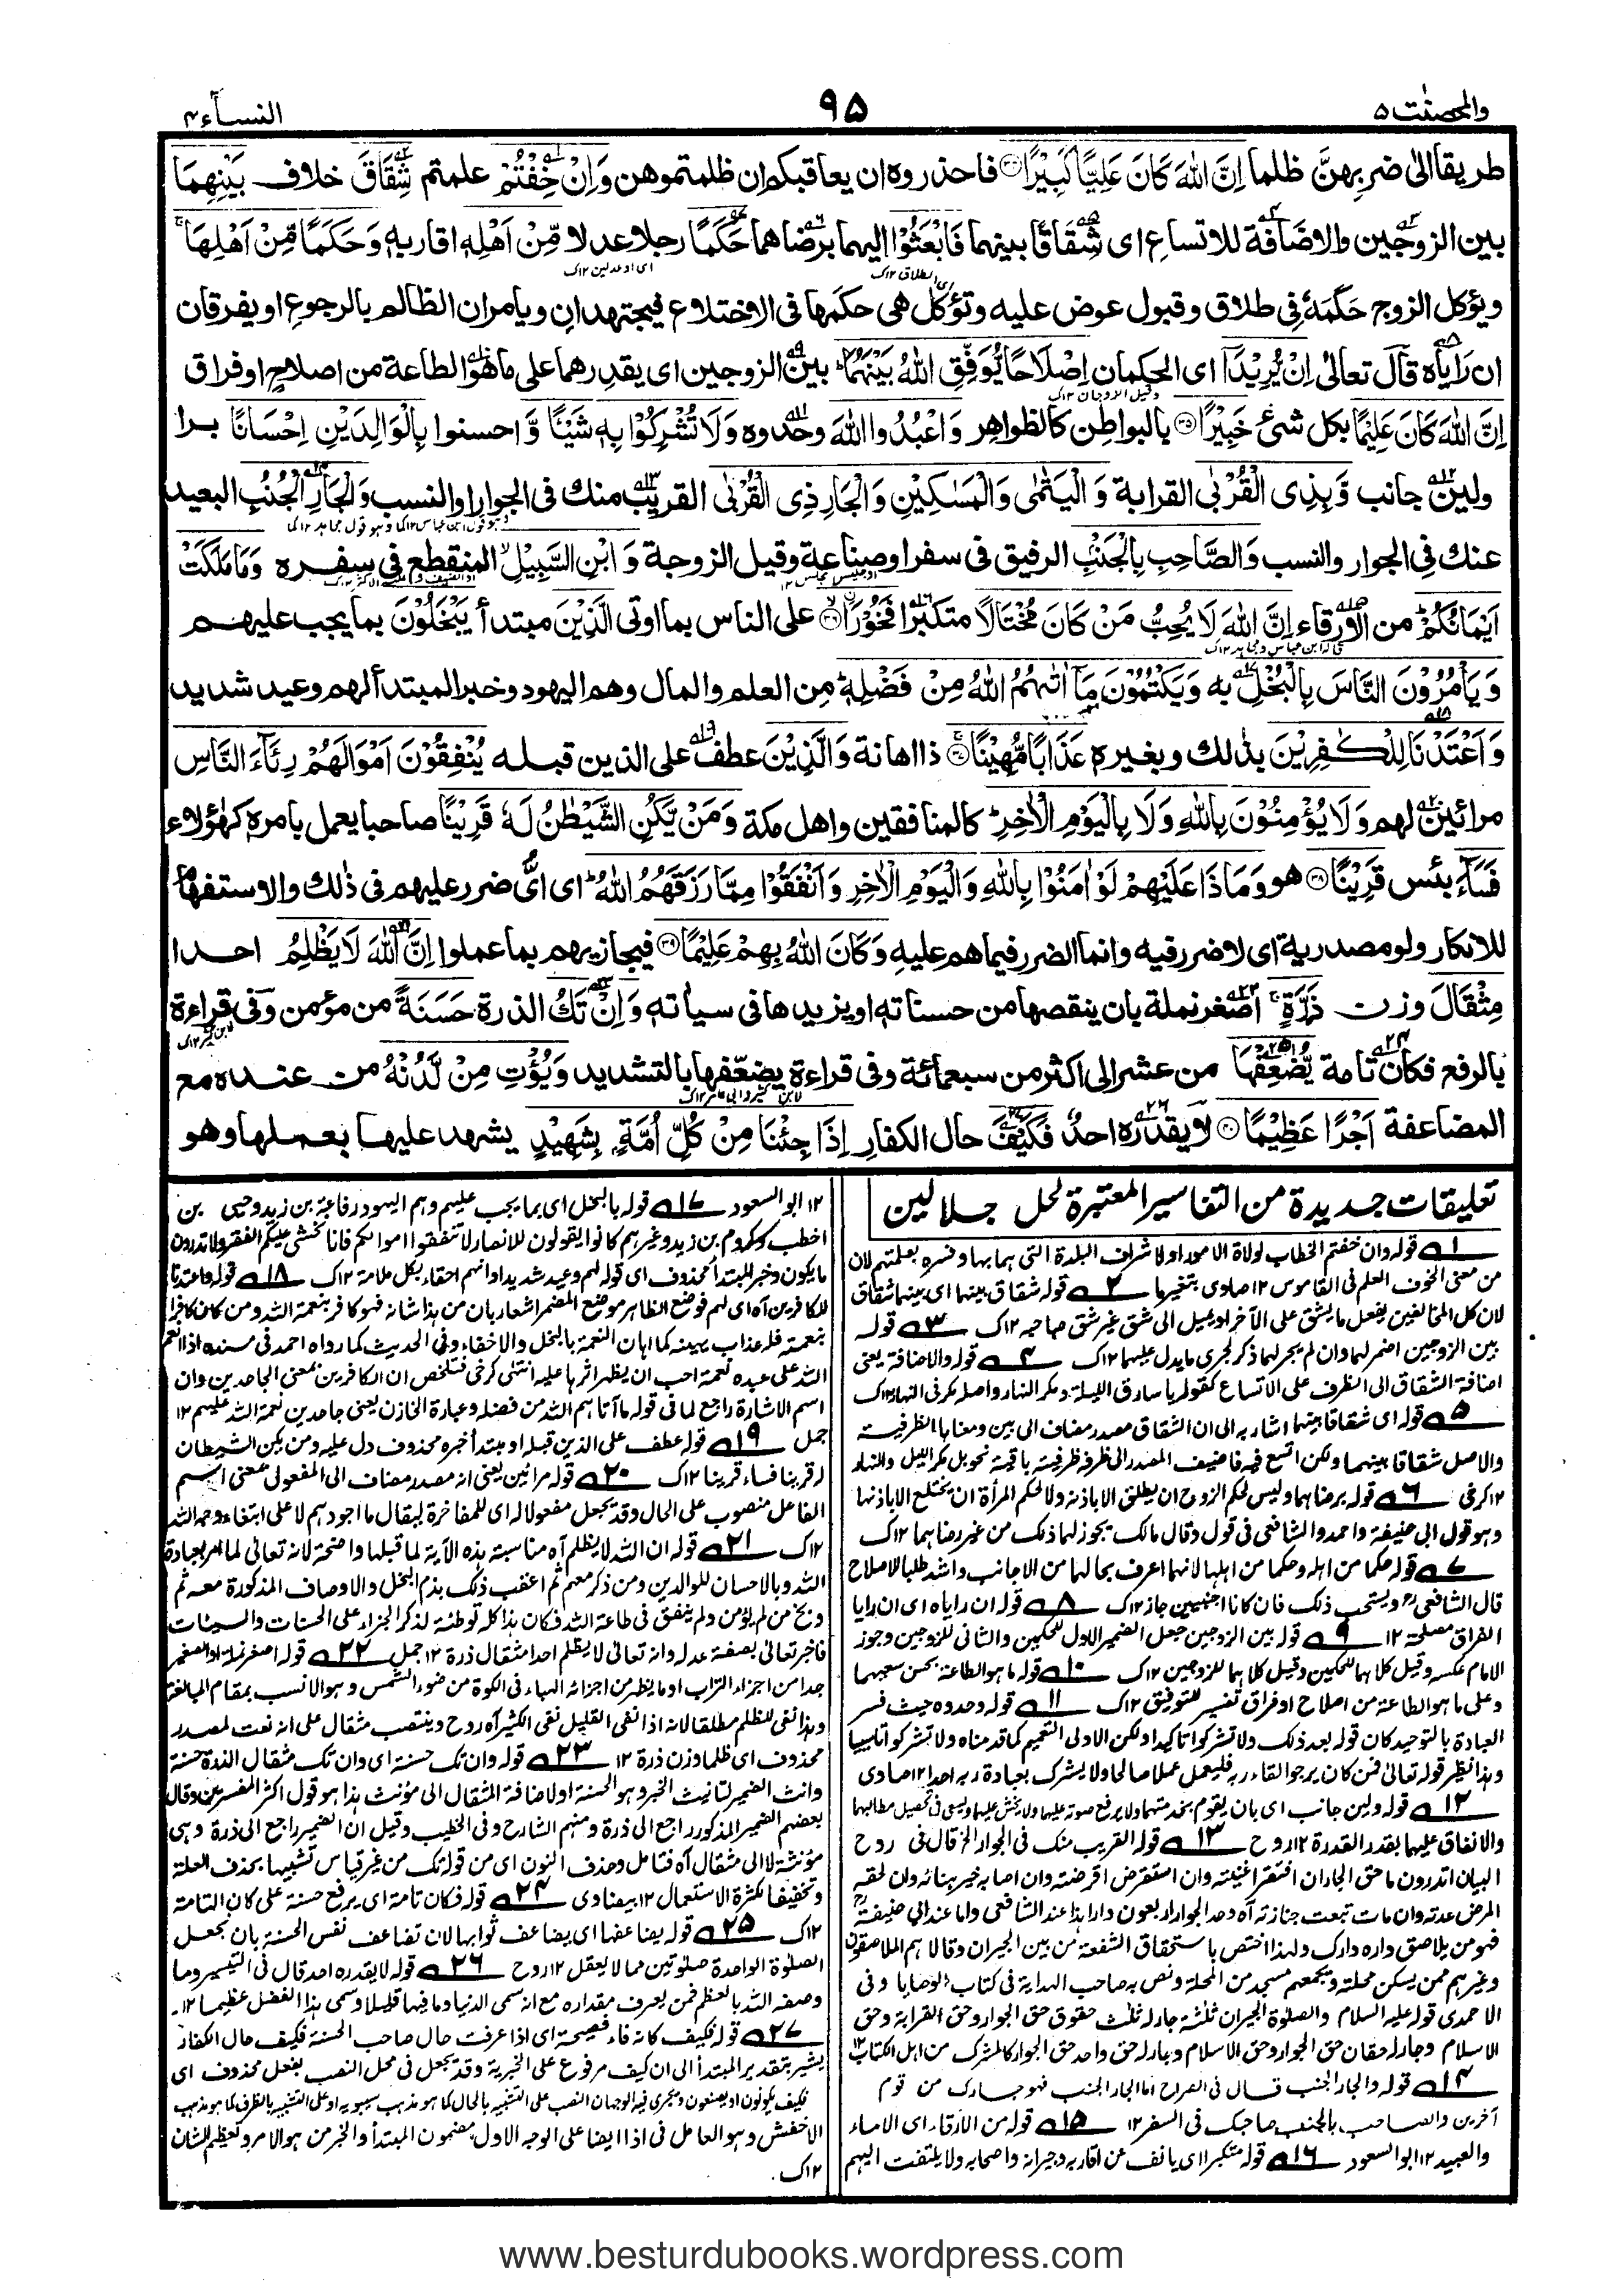 والمحصنت ۵
۹۵
النسآء ۴
طريقا الى ضربهن ظلما اِنَّ اللّٰهَ كَانَ عَلِيًّا كَبِيْرًا ۝۳۴ فاحذروه ان يعاقبكم ان ظلمتموهن وَاِنْ خِفْتُمْ علمتم شِقَاقَ خلاف بَيْنِهِمَا
بين الزوجين والاضافة للاتساع اى شقاقا بينهما فَابْعَثُوْا اليهما برضاهما حَكَمًا رجلا عدلا مِّنْ اَهْلِهٖ اقاربه وَحَكَمًا مِّنْ اَهْلِهَا ۚ
ويؤكل الزوج حكمه فى طلاق وقبول عوض عليه وتؤكل هى حكمها فى الاختلاع فيجتهدان ويامران الظالم بالرجوع او يفرقان
ان راياه قال تعالىٰ اِنْ يُّرِيْدَآ اى الحكمان اِصْلَاحًا يُّوَفِّقِ اللّٰهُ بَيْنَهُمَا ؕ بين الزوجين اى يقدرهما على ما هو الطاعة من اصلاح او فراق
اِنَّ اللّٰهَ كَانَ عَلِيْمًا بكل شئ خَبِيْرًا ۝۳۵ بالبواطن كالظواهر وَاعْبُدُوا اللّٰهَ وحدوه وَلَا تُشْرِكُوْا بِهٖ شَيْـًٔا وَّ احسنوا بِالْوَالِدَيْنِ اِحْسَانًا برا
ولين جانب وَّبِذِى الْقُرْبٰى القرابة وَالْيَتٰمٰى وَالْمَسٰكِيْنِ وَالْجَارِ ذِى الْقُرْبٰى القريب منك فى الجوار او النسب وَالْجَارِ الْجُنُبِ البعيد
عنك فى الجوار والنسب وَالصَّاحِبِ بِالْجَنْبِ الرفيق فى سفر او صناعة وقيل الزوجة وَابْنِ السَّبِيْلِ ۙ المنقطع فى سفره وَمَا مَلَكَتْ
اَيْمَانُكُمْ ؕ من الارقاء اِنَّ اللّٰهَ لَا يُحِبُّ مَنْ كَانَ مُخْتَالًا متكبرا فَخُوْرًا ۝۳۶ على الناس بما اوتى الَّذِيْنَ مبتدأ يَبْخَلُوْنَ بما يجب عليهم
وَيَاْمُرُوْنَ النَّاسَ بِالْبُخْلِ به وَيَكْتُمُوْنَ مَآ اٰتٰىهُمُ اللّٰهُ مِنْ فَضْلِهٖ ؕ من العلم والمال وهم اليهود وخبر المبتدأ لهم وعيد شديد
وَاَعْتَدْنَا لِلْكٰفِرِيْنَ بذلك وبغيره عَذَابًا مُّهِيْنًا ۝۳۷ ذا اهانة وَالَّذِيْنَ عطف على الذين قبله يُنْفِقُوْنَ اَمْوَالَهُمْ رِئَآءَ النَّاسِ
مرائين لهم وَلَا يُؤْمِنُوْنَ بِاللّٰهِ وَلَا بِالْيَوْمِ الْاٰخِرِ ؕ كالمنافقين واهل مكة وَمَنْ يَّكُنِ الشَّيْطٰنُ لَهٗ قَرِيْنًا صاحبا يعمل بامره كهؤلاء
فَسَآءَ بئس قَرِيْنًا ۝۳۸ هو وَمَاذَا عَلَيْهِمْ لَوْ اٰمَنُوْا بِاللّٰهِ وَالْيَوْمِ الْاٰخِرِ وَاَنْفَقُوْا مِمَّا رَزَقَهُمُ اللّٰهُ ؕ اى اىّ ضرر عليهم فى ذلك والاستفهام
للانكار ولو مصدرية اى لا ضرر فيه وانما الضرر فيما هم عليه وَكَانَ اللّٰهُ بِهِمْ عَلِيْمًا ۝۳۹ فيجازيهم بما عملوا اِنَّ اللّٰهَ لَا يَظْلِمُ احدا
مِثْقَالَ وزن ذَرَّةٍ ۚ اصغر نملة بان ينقصها من حسناته او يزيدها فى سياته وَاِنْ تَكُ الذرة حَسَنَةً من مؤمن وفى قراءة
بالرفع فكان تامة يُّضٰعِفْهَا من عشر الى اكثر من سبعمائة وفى قراءة يضعّفها بالتشديد وَيُؤْتِ مِنْ لَّدُنْهُ من عنده مع
المضاعفة اَجْرًا عَظِيْمًا ۝۴۰ لا يقدره احد فَكَيْفَ حال الكفار اِذَا جِئْنَا مِنْ كُلِّ اُمَّةٍۭ بِشَهِيْدٍ يشهد عليها بعملها وهو
تعليقات جديدة من التفاسير المعتبرة لحل جلالين
۱ قوله وان خفتم الخطاب لولاة الامور او لاشراف البلدة التى هما بها وفسره بعلمتم لان
من معنى الخوف العلم فى القاموس ۱۲ صاوى بتغير ما ۲ قوله شقاق بينهما اى بينهما شقاق
لان كل المخالفين يفعل ما يشق على الآخر او يميل الى شق غير شق صاحبه ۱۲ ك ۳ قوله
بين الزوجين اضمر لهما وان لم يجر لهما ذكر لجرى ما يدل عليهما ۱۲ ك ۴ قوله والاضافة يعنى
اضافة الشقاق الى الظرف على الاتساع كقوله يا سارق الليلة ومكر النهار واصله مكر فى النهار ۱۲ ك
۵ قوله اى شقاقا بينهما اشار به الى ان الشقاق مصدر مضاف الى بين ومعناها الظرفية
والاصل شقاقا بينهما ولكن اتسع فيه فاضيف المصدر الى ظرفه وظرفيته باقية نحو بل مكر الليل والنهار
۱۲ كرخى ۶ قوله برضاهما وليس لحكم الزوج ان يطلق الا باذنه ولا لحكم المرأة ان يختلع الا باذنها
وهو قول ابى حنيفة واحمد والشافعى فى قول وقال مالك يجوز لهما ذلك من غير رضاهما ۱۲ ك
۷ قوله حكما من اهله وحكما من اهلها لانهما اعرف بحالهما من الاجانب واشد طلبا للاصلاح
قال الشافعى ويستحب ذلك فان كانا اجنبيين جاز ۱۲ ك ۸ قوله ان راياه اى ان رايا
الفراق مصلحة ۱۲ ۹ قوله بين الزوجين جعل الضمير الاول للحكمين والثانى للزوجين وجوز
الامام عكسه وقيل كلاهما للحكمين وقيل كلاهما للزوجين ۱۲ ك ۱۰ قوله ما هو الطاعة بحسن سعيهما
وعلى ما هو الطاعة من اصلاح او فراق تفسير للتوفيق ۱۲ ك ۱۱ قوله وحدوه حيث فسر
العبادة بالتوحيد كان قوله بعد ذلك ولا تشركوا تاكيدا ولكن الاولى التعميم كما قدمناه ولا تشركوا تاسيسا
وهذا نظير قوله تعالى فمن كان يرجوا لقاء ربه فليعمل عملا صالحا ولا يشرك بعبادة ربه احدا ۱۲ صاوى
۱۲ قوله ولين جانب اى بان يقوم بخدمتهما ولا يرفع صوته عليهما ولا يخشن عليهما ويسعى فى تحصيل مطالبهما
والانفاق عليهما بقدر القدرة ۱۲ روح ۱۳ قوله القريب منك فى الجوار الخ قال فى روح
البيان اتدرون ما حق الجار ان افتقر اغنيته وان استقرض اقرضته وان اصابه خير هنأته وان لحقه
المرض عدته وان مات تبعت جنازته آه وحد الجوار اربعون دارا هذا عند الشافعى واما عند ابى حنيفة
فهو من يلاصق داره دارك ولهذا اختص باستحقاق الشفعة من بين الجيران وقالا هم الملاصقون
وغيرهم ممن يسكن محلته ويجمعهم مسجد من المحلة ونص به صاحب الهداية فى كتاب الوصايا وفى
الاحمدى قوله عليه السلام والصلوة الجيران ثلثة جار له ثلث حقوق حق الجوار وحق القرابة وحق
الاسلام وجار له حقان حق الجوار وحق الاسلام وجار له حق واحد حق الجوار كالمشرك من اهل الكتاب ۱۲
۱۴ قوله والجار الجنب قال فى الصراح اما الجار الجنب فهو جارك من قوم
آخرين والصاحب بالجنب صاحبك فى السفر ۱۲ ۱۵ قوله من الارقاء اى الاماء
والعبيد ۱۲ ابو السعود ۱۶ قوله متكبرا اى يانف عن اقاربه وجيرانه واصحابه ولا يلتفت اليهم
۱۲ ابو السعود ۱۷ قوله بالبخل اى بما يجب عليهم وهم اليهود رفاعة بن زيد وحيى بن
اخطب وكردم بن زيد وغيرهم كانوا يقولون للانصار لا تنفقوا اموالكم فانا نخشى عليكم الفقر ولا تدرون
ما يكون وخبر المبتدأ محذوف اى قوله لهم وعيد شديد او انهم احقاء بكل ملامة ۱۲ ك ۱۸ قوله واعتدنا
للكافرين آه اى لهم فوضع الظاهر موضع المضمر اشعارا بان من هذا شانه فهو كافر بنعمة الله ومن كان كافرا
بنعمة فله عذاب يهينه كما اهان النعمة بالبخل والاخفاء وفى الحديث كما رواه احمد فى مسنده اذا انعم
الله على عبده نعمة احب ان يظهر اثرها عليه انتهى كرخى فتلخص ان الكافرين بمعنى الجاحدين وان
اسم الاشارة راجع لما فى قوله ما آتاهم الله من فضله وعبارة الخازن يعنى جاحدين نعمة الله عليهم ۱۲
جمل ۱۹ قوله عطف على الذين قبله او مبتدأ خبره محذوف دل عليه ومن يكن الشيطان
له قرينا فساء قرينا ۱۲ ك ۲۰ قوله مرائين يعنى انه مصدر مضاف الى المفعول بمعنى اسم
الفاعل منصوب على الحال وقد يجعل مفعولا له اى للمفاخرة ليقال ما اجودهم لا على ابتغاء وجه الله
۱۲ ك ۲۱ قوله ان الله لا يظلم آه مناسبة هذه الآية لما قبلها واضحة لانه تعالى لما امر بعبادة
الله وبالاحسان للوالدين ومن ذكر معهم ثم اعقب ذلك بذم البخل والاوصاف المذكورة معه ثم
وبخ من لم يؤمن ولم ينفق فى طاعة الله فكان هذا كله توطئة لذكر الجزاء على الحسنات والسيئات
فاخبر تعالى بصفة عدله وانه تعالى لا يظلم احدا مثقال ذرة ۱۲ جمل ۲۲ قوله اصغر نملة او الصغير
جدا من اجزاء التراب او ما يظهر من اجزائه الهباء فى الكوة من ضوء الشمس وهو الانسب بمقام المبالغة
وهذا نفى للظلم مطلقا لانه اذا نفى القليل نفى الكثير آه روح وينتصب مثقال على انه نعت لمصدر
محذوف اى ظلما وزن ذرة ۱۲ ۲۳ قوله وان تك حسنة اى وان تك مثقال الذرة حسنة
وانث الضمير لتانيث الخبر وهو الحسنة او لاضافة المثقال الى مؤنث هذا هو قول اكثر المفسرين وقال
بعضهم الضمير المذكور راجع الى ذرة ومنهم الشارح وفى الخطيب وقيل ان الضمير راجع الى ذرة وهى
مؤنثة لا الى مثقال آه فتامل وحذف النون اى من قوله تك من غير قياس تشبيها بحذف العلة
وتخفيفا لكثرة الاستعمال ۱۲ بيضاوى ۲۴ قوله فكان تامة اى يرفع حسنة على كان التامة
۱۲ ك ۲۵ قوله يضاعفها اى يضاعف ثوابها لان تضاعف نفس الحسنة بان تجعل
الصلوة الواحدة صلوتين مما لا يعقل ۱۲ روح ۲۶ قوله لا يقدره احد قال فى التيسير وما
وصفه الله بالعظم فمن يعرف مقداره مع انه سمى الدنيا وما فيها قليلا وسمى هذا الفضل عظيما ۱۲
۲۷ قوله فكيف كانه فاء فصيحة اى اذا عرفت حال صاحب الحسنة فكيف حال الكفار
يشير بتقدير المبتدأ الى ان كيف مرفوع على الخبرية وقد يجعل فى محل النصب بفعل محذوف اى
فكيف يكونون او يصنعون ويجرى فيه الوجهان النصب على التشبيه بالحال كما هو مذهب سيبويه او على التشبيه بالظرف كما هو مذهب
الاخفش وهو العامل فى اذا ايضا على الوجه الاول مضمون المبتدأ والخبر من هول الامر وتعظيم الشان
۱۲ ك
www.besturdubooks.wordpress.com